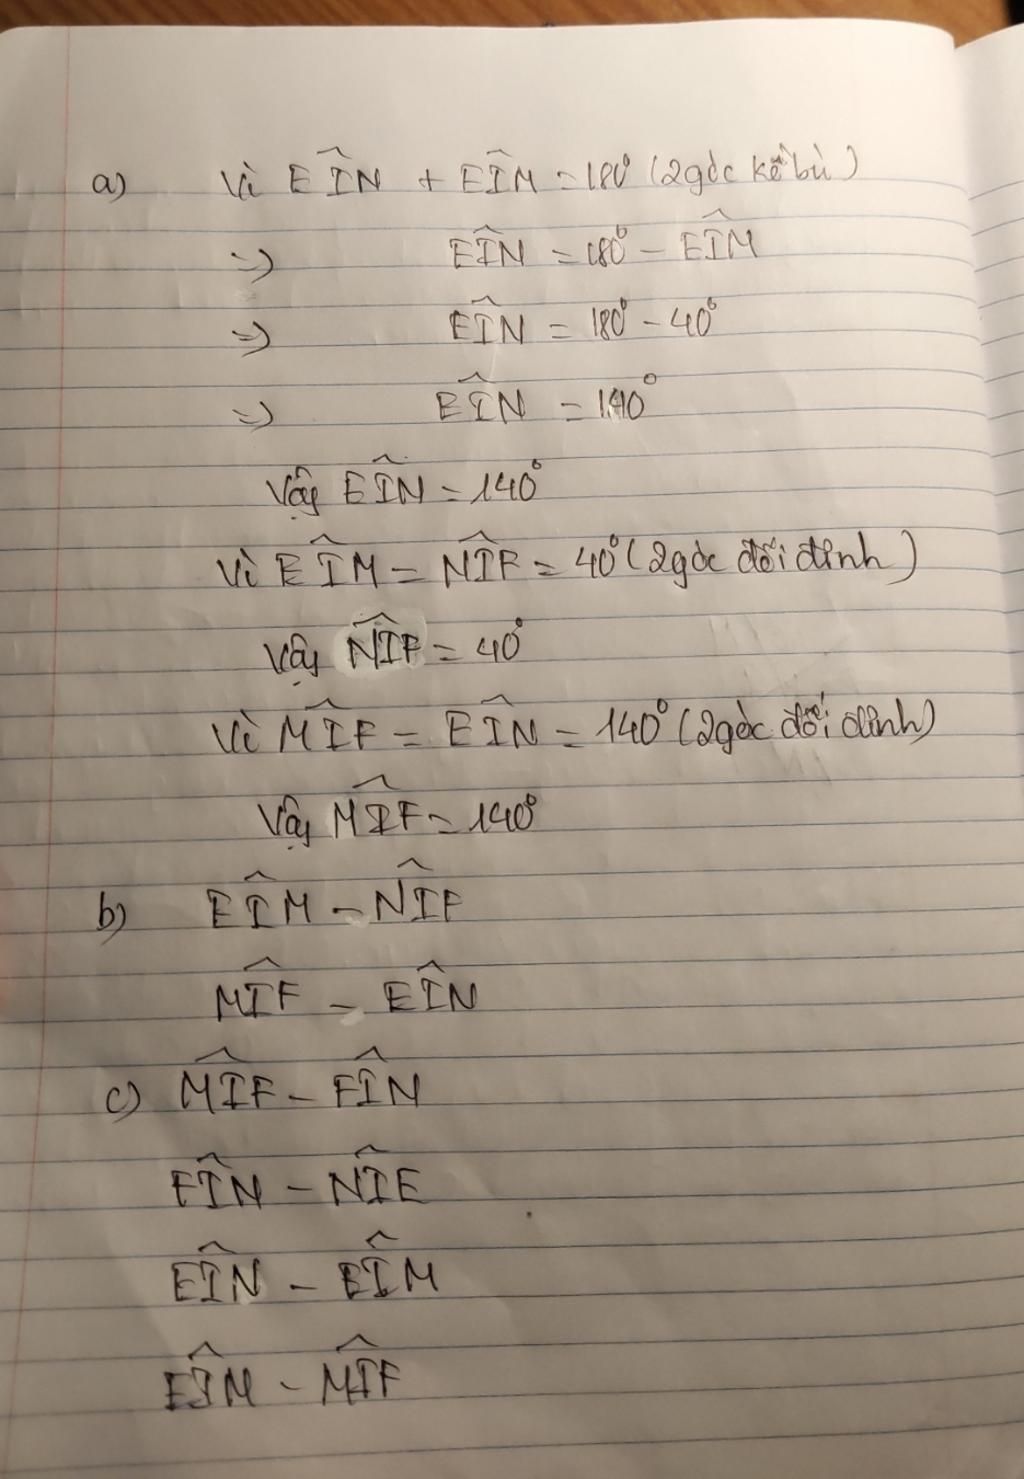 a) Vì EÎN + EÎM = 180° (2góc kề bù)
=> EÎN = 180° - EÎM
=> EÎN = 180° - 40°
=> EÎN = 140°
Vậy EÎN = 140°
Vì EÎM = NÎF = 40° (2góc đối đỉnh)
Vậy NÎF = 40°
Vì MÎF = EÎN = 140° (2góc đối đỉnh)
Vậy MÎF = 140°
b) EÎM - NÎF
MÎF - EÎN
c) MÎF - FÎN
FÎN - NÎE
EÎN - EÎM
EÎM - MÎF